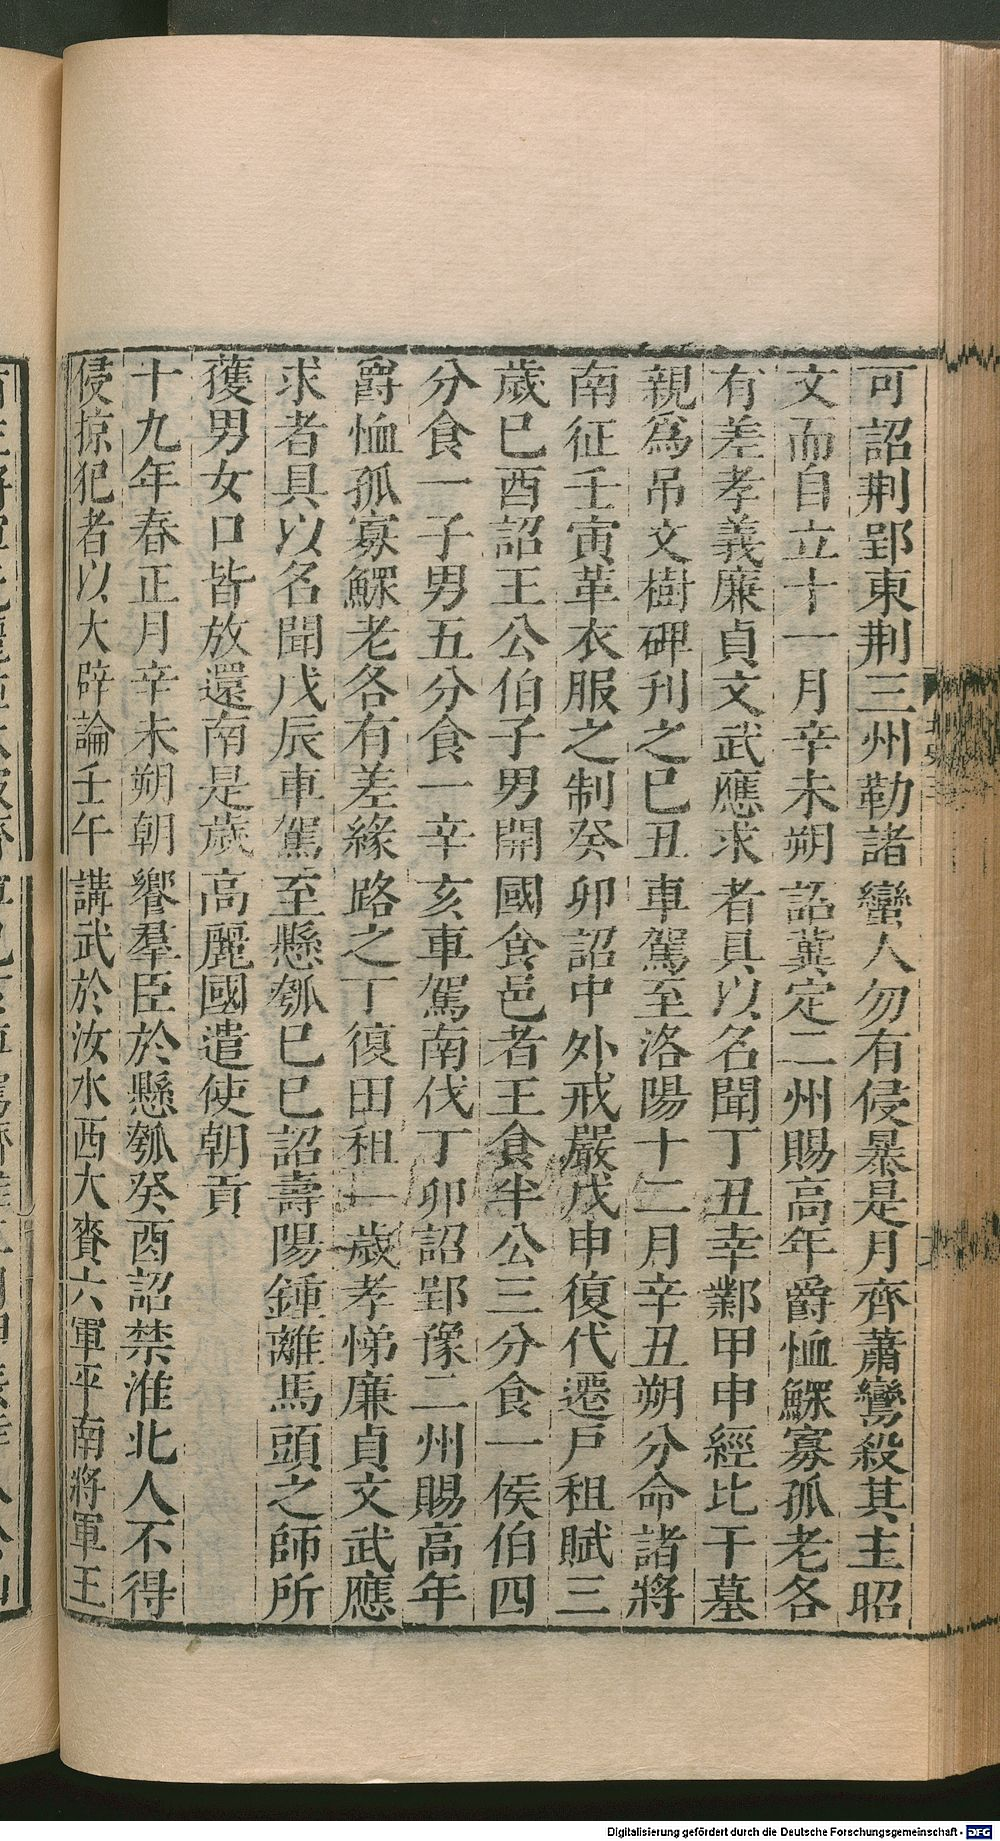 可詔荆郢東荆三州勒諸蠻人勿有侵暴是月齊蕭鸞殺其主昭
文而自立十一月辛未朔詔冀定二州賜高年爵恤鰥寡孤老各
有差孝義廉貞文武應求者具以名聞丁丑幸鄴甲申經比干墓
親爲吊文樹碑刊之巳丑車駕至洛陽十二月辛丑朔分命諸將
南征壬寅革衣服之制癸卯詔中外戒嚴戊申復代遷戸租賦三
歲巳酉詔王公伯子男開國食邑者王食半公三分食一侯伯四
分食一子男五分食一辛亥車駕南伐丁卯詔郢豫二州賜高年
爵恤孤寡鰥老各有差緣路之丁復田租一歲孝悌廉貞文武應
求者具以名聞戊辰車駕至懸瓠巳巳詔壽陽鍾離馬頭之師所
獲男女口皆放還南是歲高麗國遣使朝貢
十九年春正月辛未朔朝饗羣臣於懸瓠癸酉詔禁淮北人不得
侵掠犯者以大辟論壬午講武於汝水西大賚六軍平南將軍王
Digitalisierung gefördert durch die Deutsche Forschungsgemeinschaft - DFG